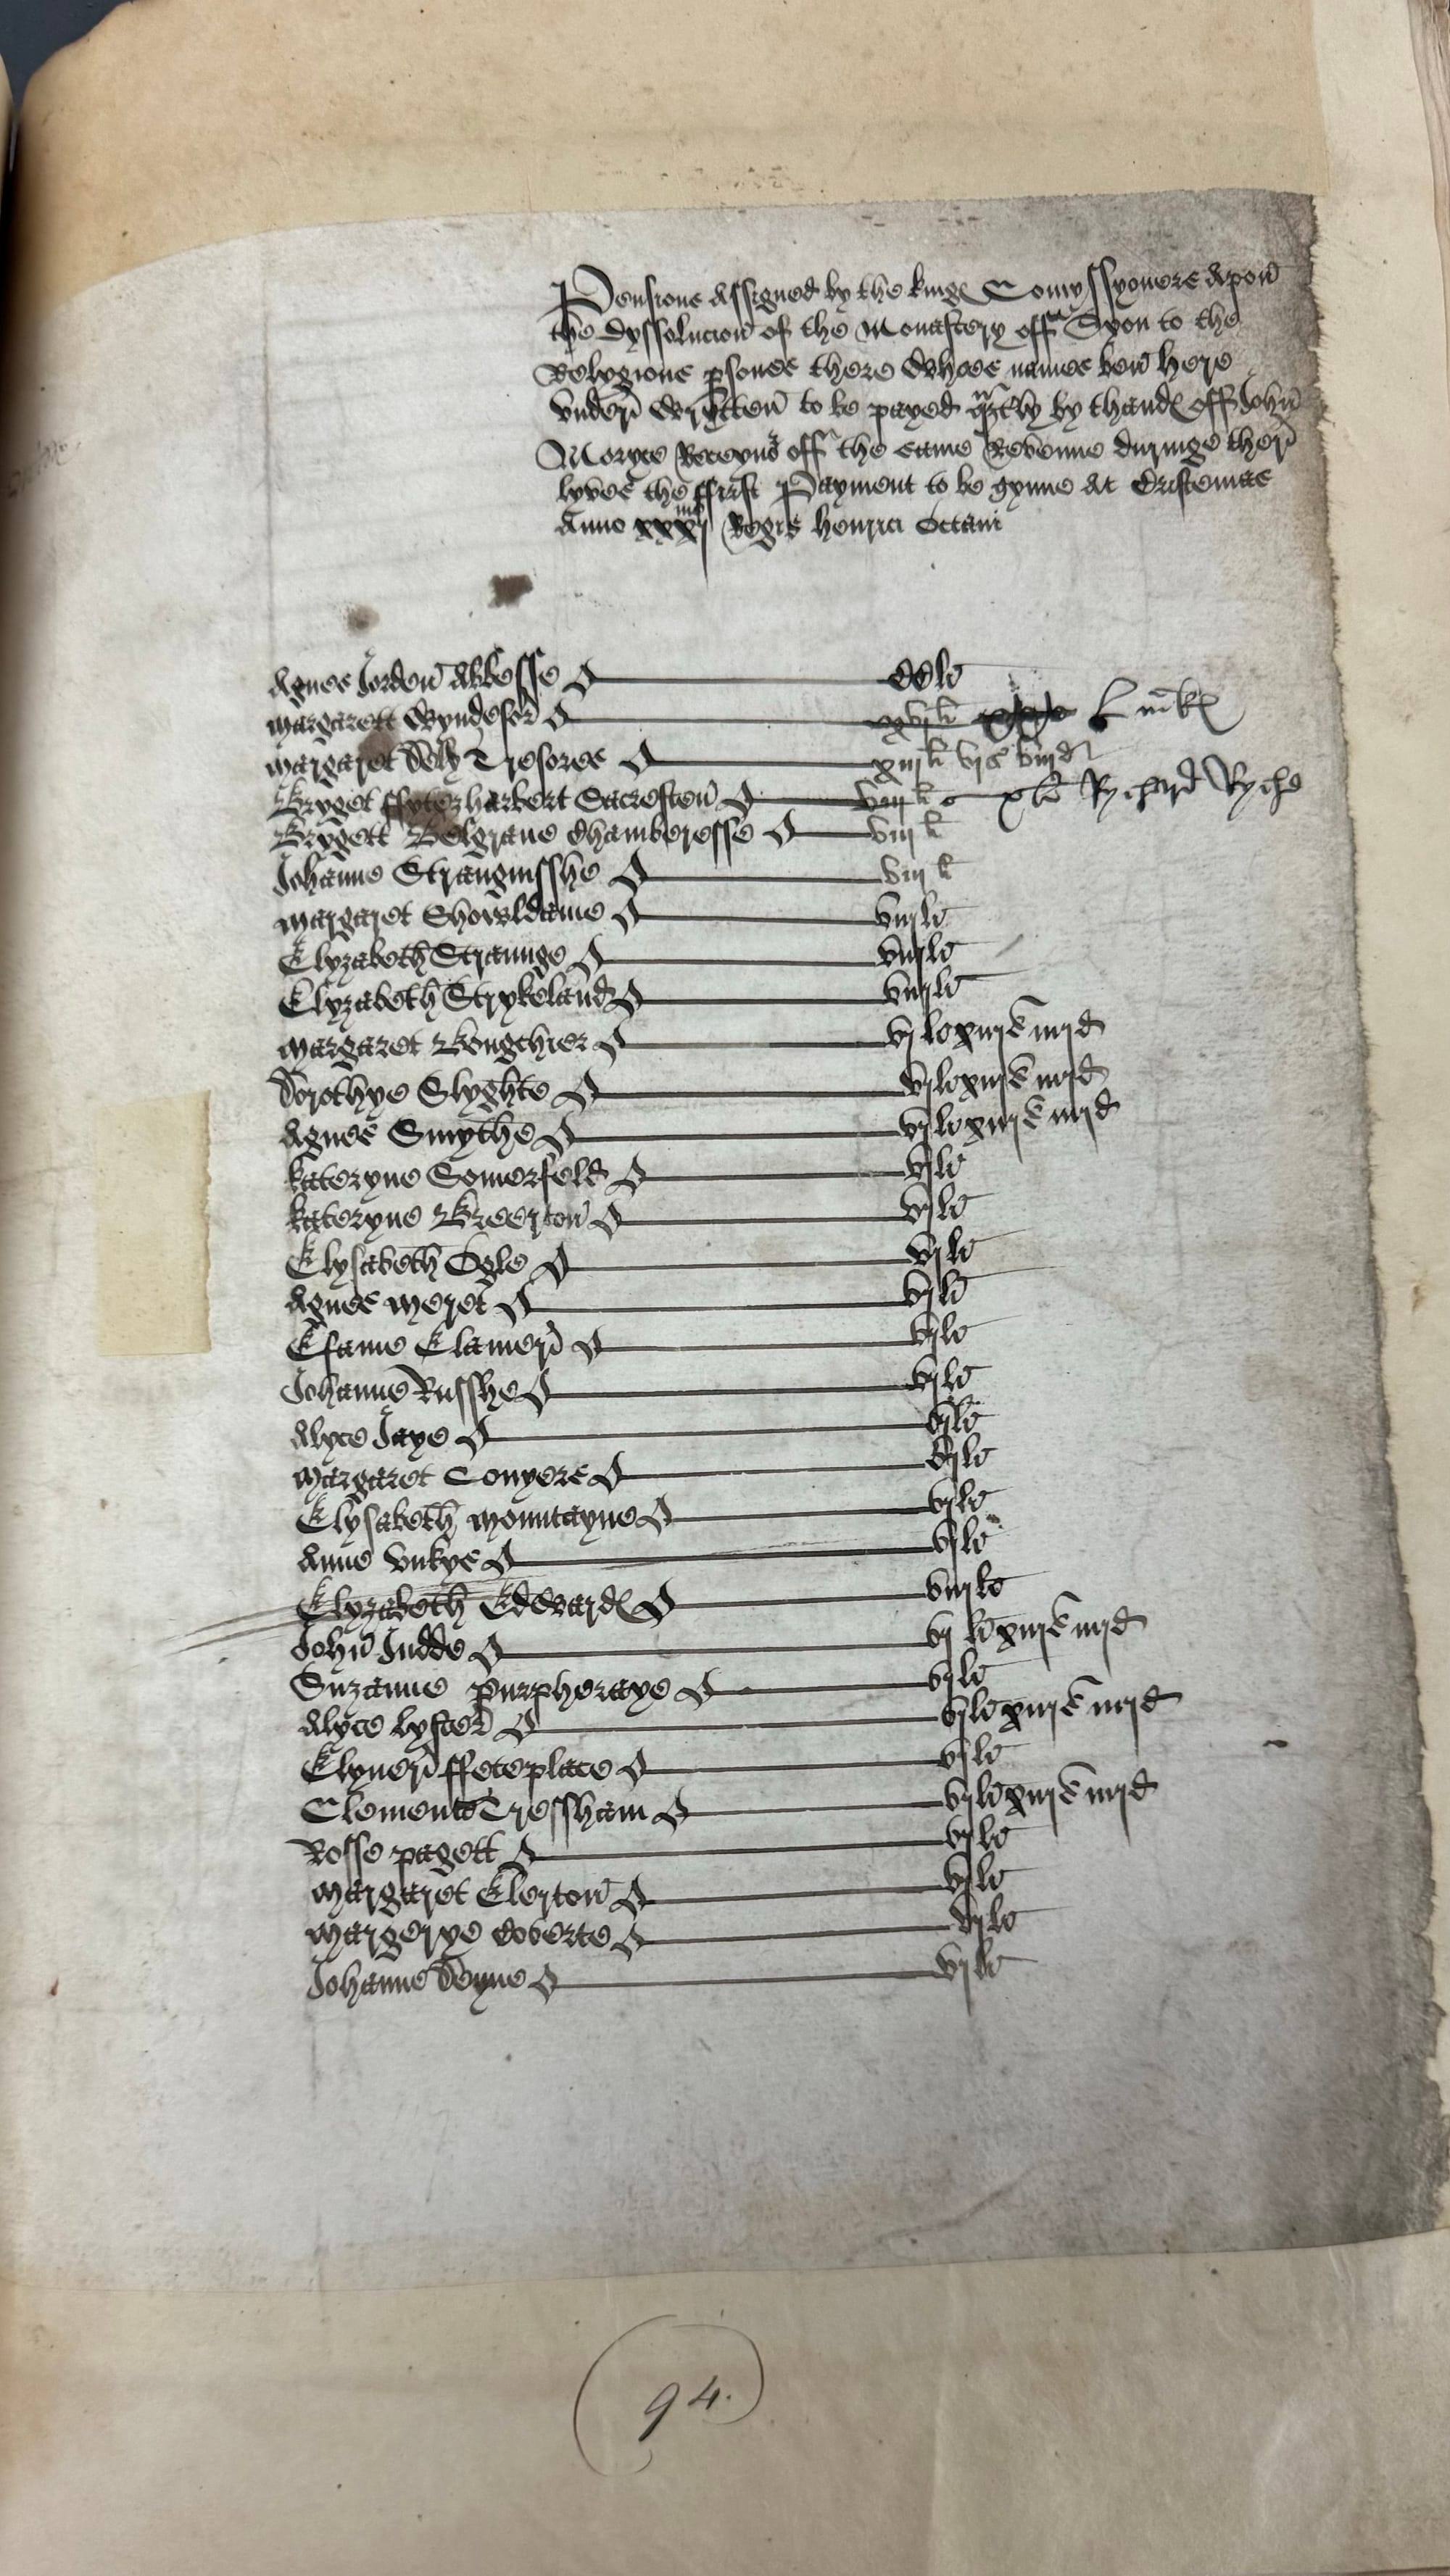 Pensions Assigned by the king Comyssyoners Apon
the dyssolucion of the Monastery off Syon to the
Relygious psones there Whoes names ben here
vnder Wrytten to be payed qrtly by thand off John
Moryce Receyur off the same Revenue duringe ther
lyves the ffirst Payment to be gynne At Cristemas
Anno xxxj Regis henrici Octaui
Agnes Jorden Abbesse CCli
margarett Wyndesor l mks
margaret Dely Tresores xiijli vjs viijd
Bryget ffytzharbert Sacresten viijli xli Rychard Ryche
Brygett Belgrave Chamberesse viijli
Johanne Strangnisshe viijli
margaret Showldame viijli
Elyzabeth Straunge viijli
Elyzabeth Strykeland viijli
margaret Bougchier vjli xiijs iiijd
Dorothye Slyghte vjli xiijs iiijd
Agnes Smythe vjli xiijs iiijd
kateryne Somerfeld vjli
kateryne Breerton vjli
Elysabeth Ogle vjli
Agnes meret vjli
Efame Elamer vjli
Johanne Russhe vjli
Alyce Jaye vjli
margaret Conyers vjli
Elysabeth mountayne vjli
Anne vnkys vjli
Elyzabeth Edward viijli
John Judde vjli xiijs iiijd
Suzanne purpheraye vjli
Alyce lyster vjli xiijs iiijd
Elyner ffeteplace vjli
Clemente Tressham vjli xiijs iiijd
Rosse pagett vjli
margaret Elerton vjli
margerye Coverte vjli
Johanne Deyne vjli
94.